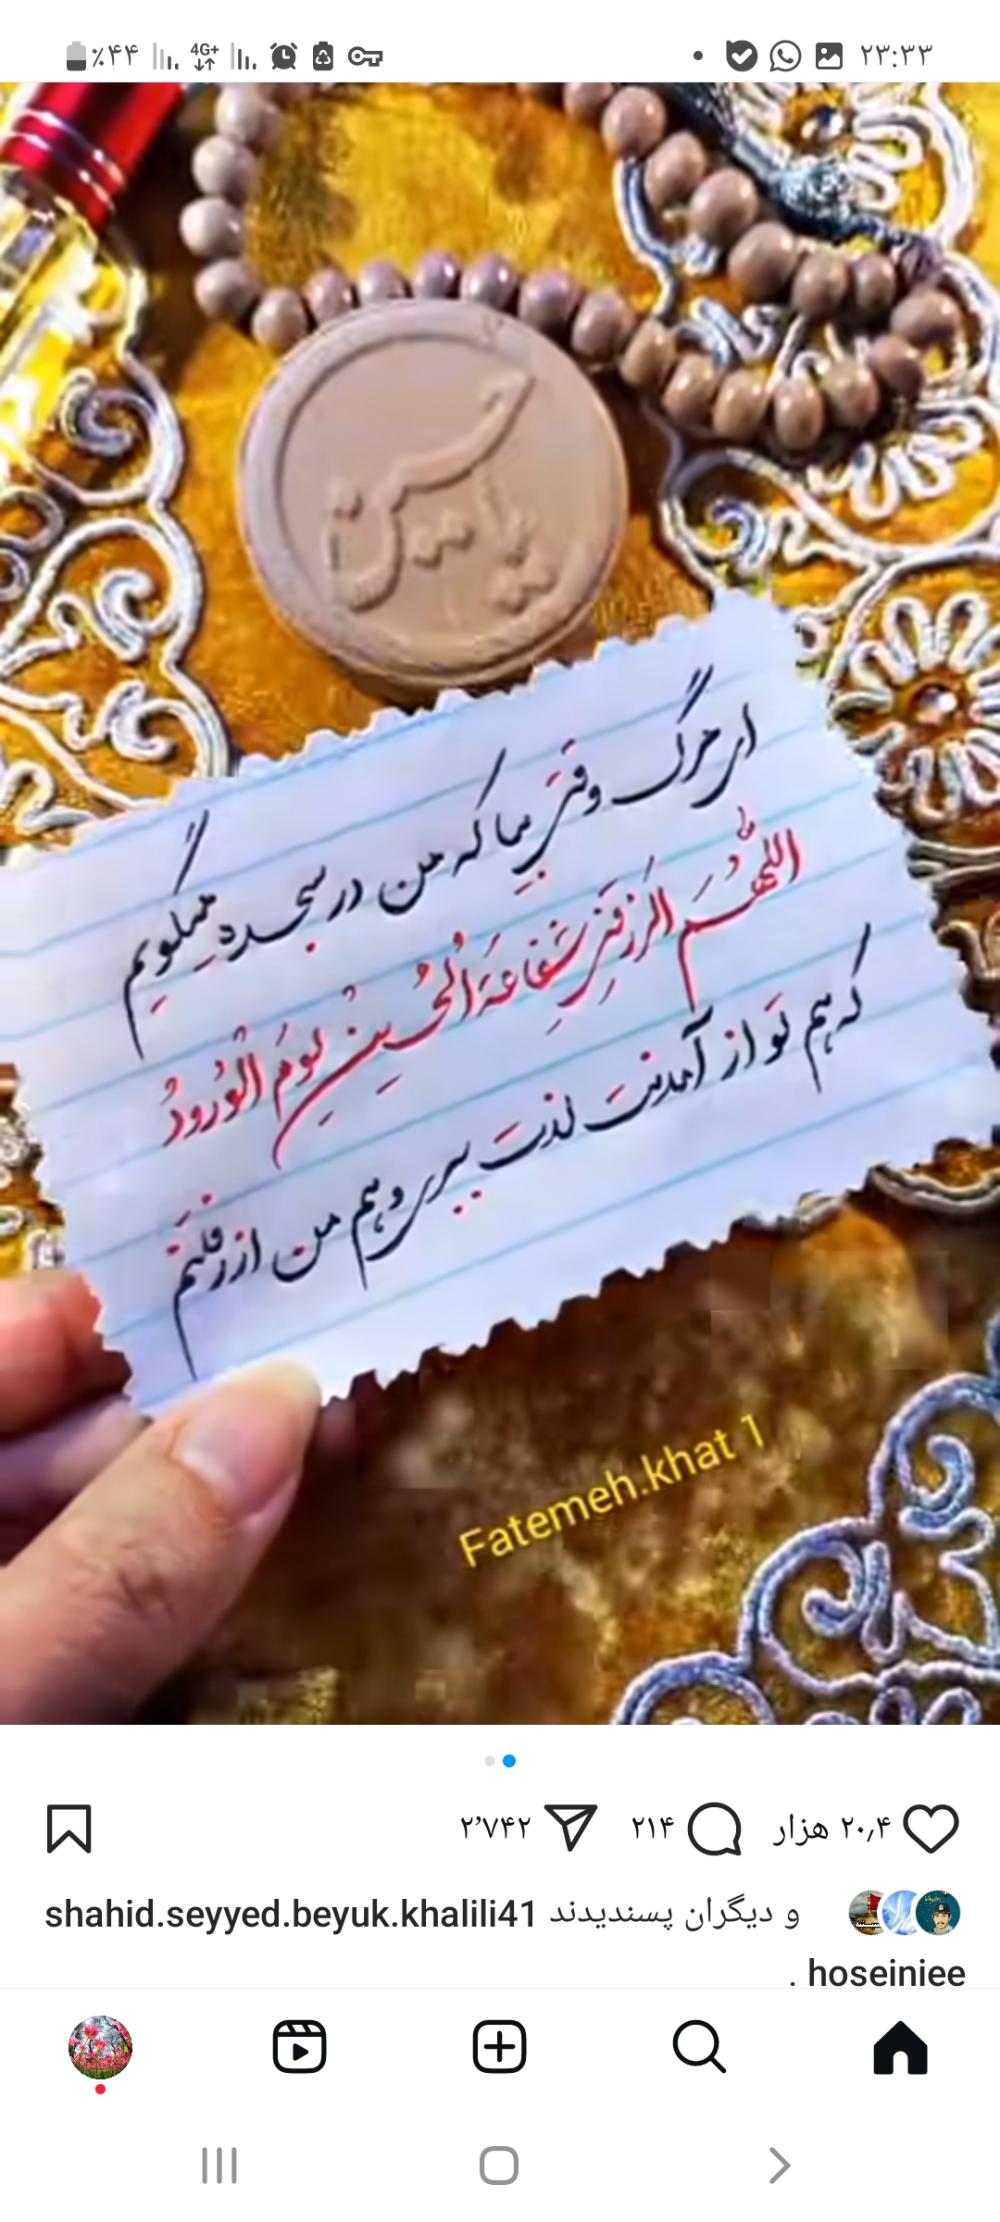 ٪۴۴ 4G+ ۲۳:۳۳
یا حسین
ای مرگ وقتی بیا که من در سجده میگویم
اللهم الرزقنی شفاعة الحسین یوم الورود
که هم تو از آمدنت لذت ببری و هم من از رفتنم
Fatemeh.khat 1
۲۰٫۴ هزار ۲۱۴ ۲٬۷۴۲
shahid.seyyed.beyuk.khalili41 و دیگران پسندیدند
hoseiniee .